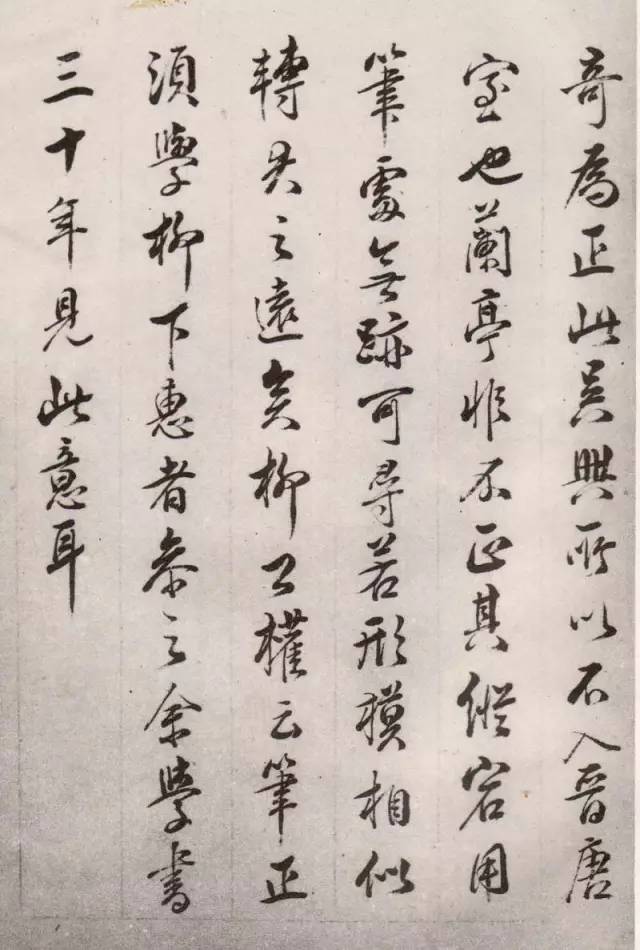 奇為正此吳興所以不入晉唐
室也蘭亭非不正其縱宕用
筆處無跡可尋若形模相似
轉去之遠矣柳公權云筆正
須學柳下惠者參之余學書
三十年見此意耳